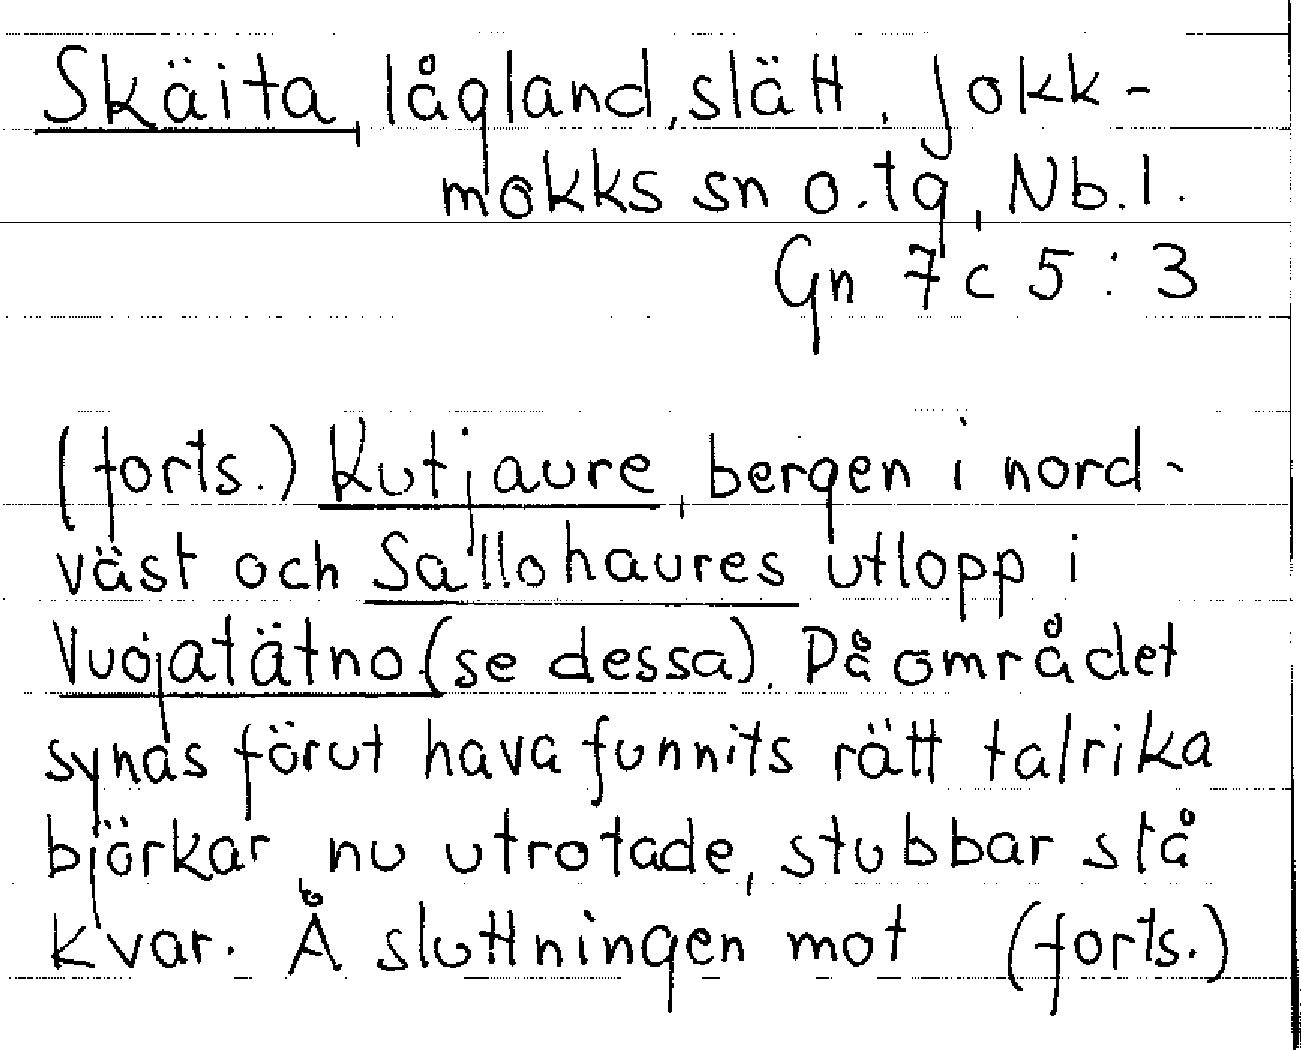 Skäita, lågland, slätt. Jokk-
mokks sn o. tg, Nb. l.
Gn 7 c 5 : 3
(forts.) Kutjaure, bergen i nord-
väst och Sallohaures utlopp i
Vuojatätno (se dessa). På området
synas förut hava funnits rätt talrika
björkar, nu utrotade, stubbar stå
kvar. Å sluttningen mot (forts.)